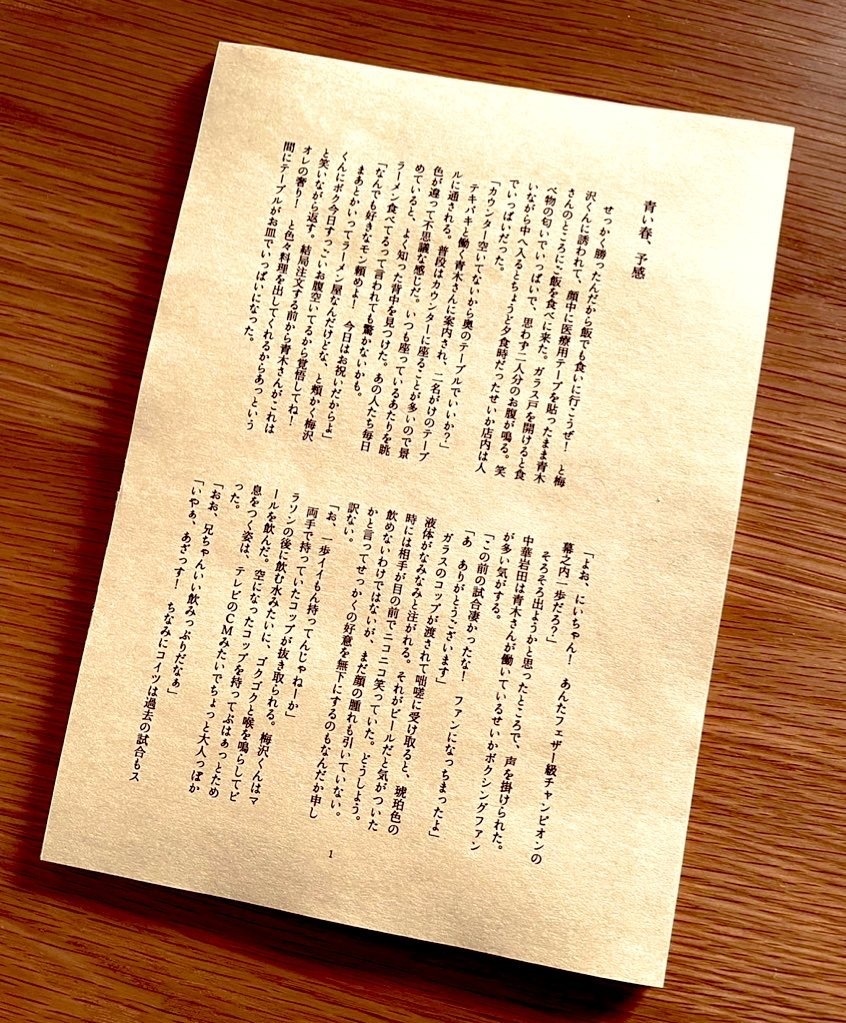 青い春、予感
せっかく勝ったんだから飯でも食いに行こうぜ！　と梅
沢くんに誘われて、顔中に医療用テープを貼ったまま青木
さんのところにご飯を食べに来た。ガラス戸を開けると食
べ物の匂いでいっぱいで、思わず二人分のお腹が鳴る。笑
いながら中へ入るとちょうど夕食時だったせいか店内は人
でいっぱいだった。
「カウンター空いてないから奥のテーブルでいいか？」
テキパキと働く青木さんに案内され、二名がけのテーブ
ルに通される。普段はカウンターに座ることが多いので景
色が違って不思議な感じだ。いつも座っているあたりを眺
めていると、よく知った背中を見つけた。あの人たち毎日
ラーメン食べてるって言われても驚かないかも。
「なんでも好きなモン頼めよ！　今日はお祝いだからよ」
まあとかいってラーメン屋なんだけどな、と頬かく梅沢
くんにボク今日すっごいお腹空いてるから覚悟してね！
と笑いながら返す。結局注文する前から青木さんがこれは
オレの奢り！　と色々料理を出してくれるからあっという
間にテーブルがお皿でいっぱいになった。
「よお、にいちゃん！　あんたフェザー級チャンピオンの
幕之内一歩だろ？」
そろそろ出ようかと思ったところで、声を掛けられた。
中華岩田は青木さんが働いているせいかボクシングファン
が多い気がする。
「この前の試合凄かったな！　ファンになっちまったよ」
「あ　ありがとうございます」
ガラスのコップが渡されて咄嗟に受け取ると、琥珀色の
液体がなみなみと注がれる。それがビールだと気がついた
時には相手が目の前でニコニコ笑っていた。どうしよう。
飲めないわけではないが、まだ顔の腫れも引いていない。
かと言ってせっかくの好意を無下にするのもなんだか申し
訳ない。
「お、一歩イイもん持ってんじゃねーか」
両手で持っていたコップが抜き取られる。梅沢くんはマ
ラソンの後に飲む水みたいに、ゴクゴクと喉を鳴らしてビ
ールを飲んだ。空になったコップを持ってぷはぁっとため
息をつく姿は、テレビのCMみたいでちょっと大人っぽか
った。
「おお、兄ちゃんいい飲みっぷりだなぁ」
「いやぁ、あざっす！　ちなみにコイツは過去の試合もス
1